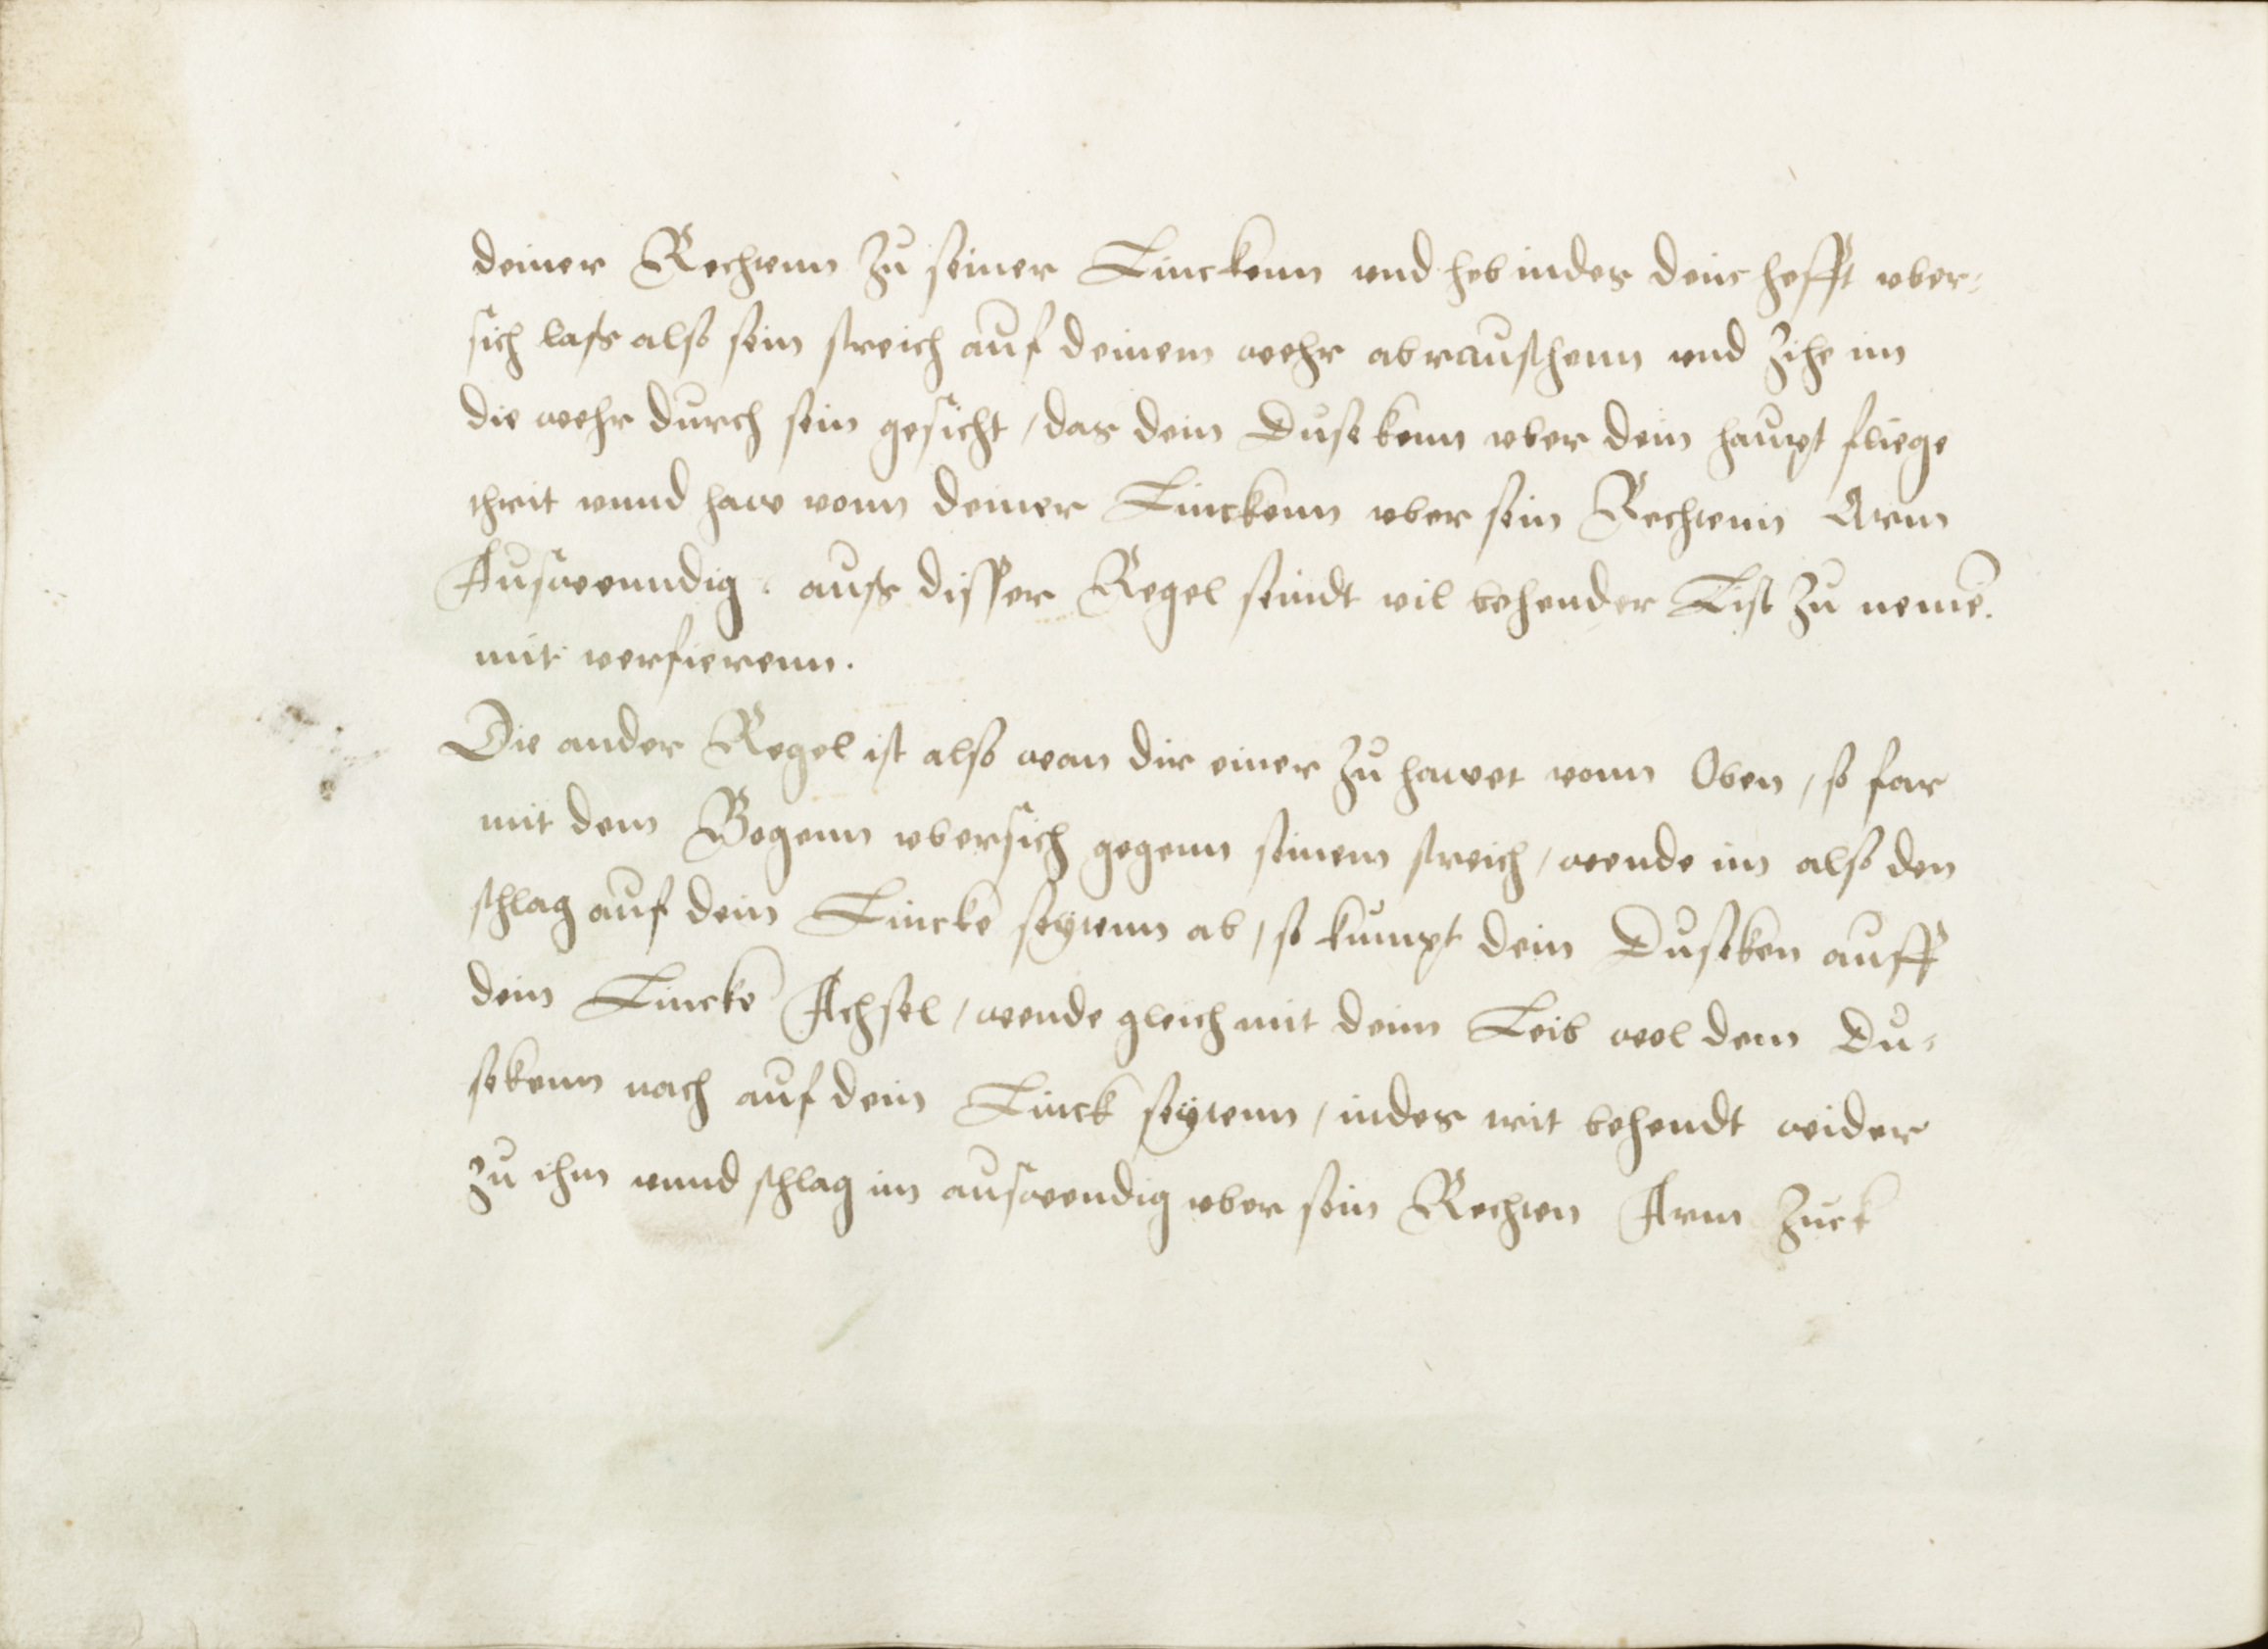 deiner Rechtenn zu seiner Linckenn vnd heb indes dein hefft vber-
sich lass also sein streich auf deinem wehr abrauschenn vnd zihe im
die wehr durch sein gesicht, das dein Dusekenn vber dein haupt fliege
thrit vnnd haw vonn deiner Linckenn vber sein Rechtenn Arm
Auswenndig. auss disser Regel seindt vil behender List zu nemē.
mit verfierenn.
Die ander Regel ist also wan dir einer zu hawet vonn Oben, so far
mit dem Bogenn vbersich gegenn seinem streich, wende im also den
schlag auf dein Lincke seytenn ab, so kumpt dein Duseken auff
dein Lincke Achsel, wende gleich mit deim Leib wol dem Du-
sekenn nach auf dein Linck seytenn, indes trit behendt wider
zu ihm vnnd schlag im auswendig vber sein Rechten Arm zuck